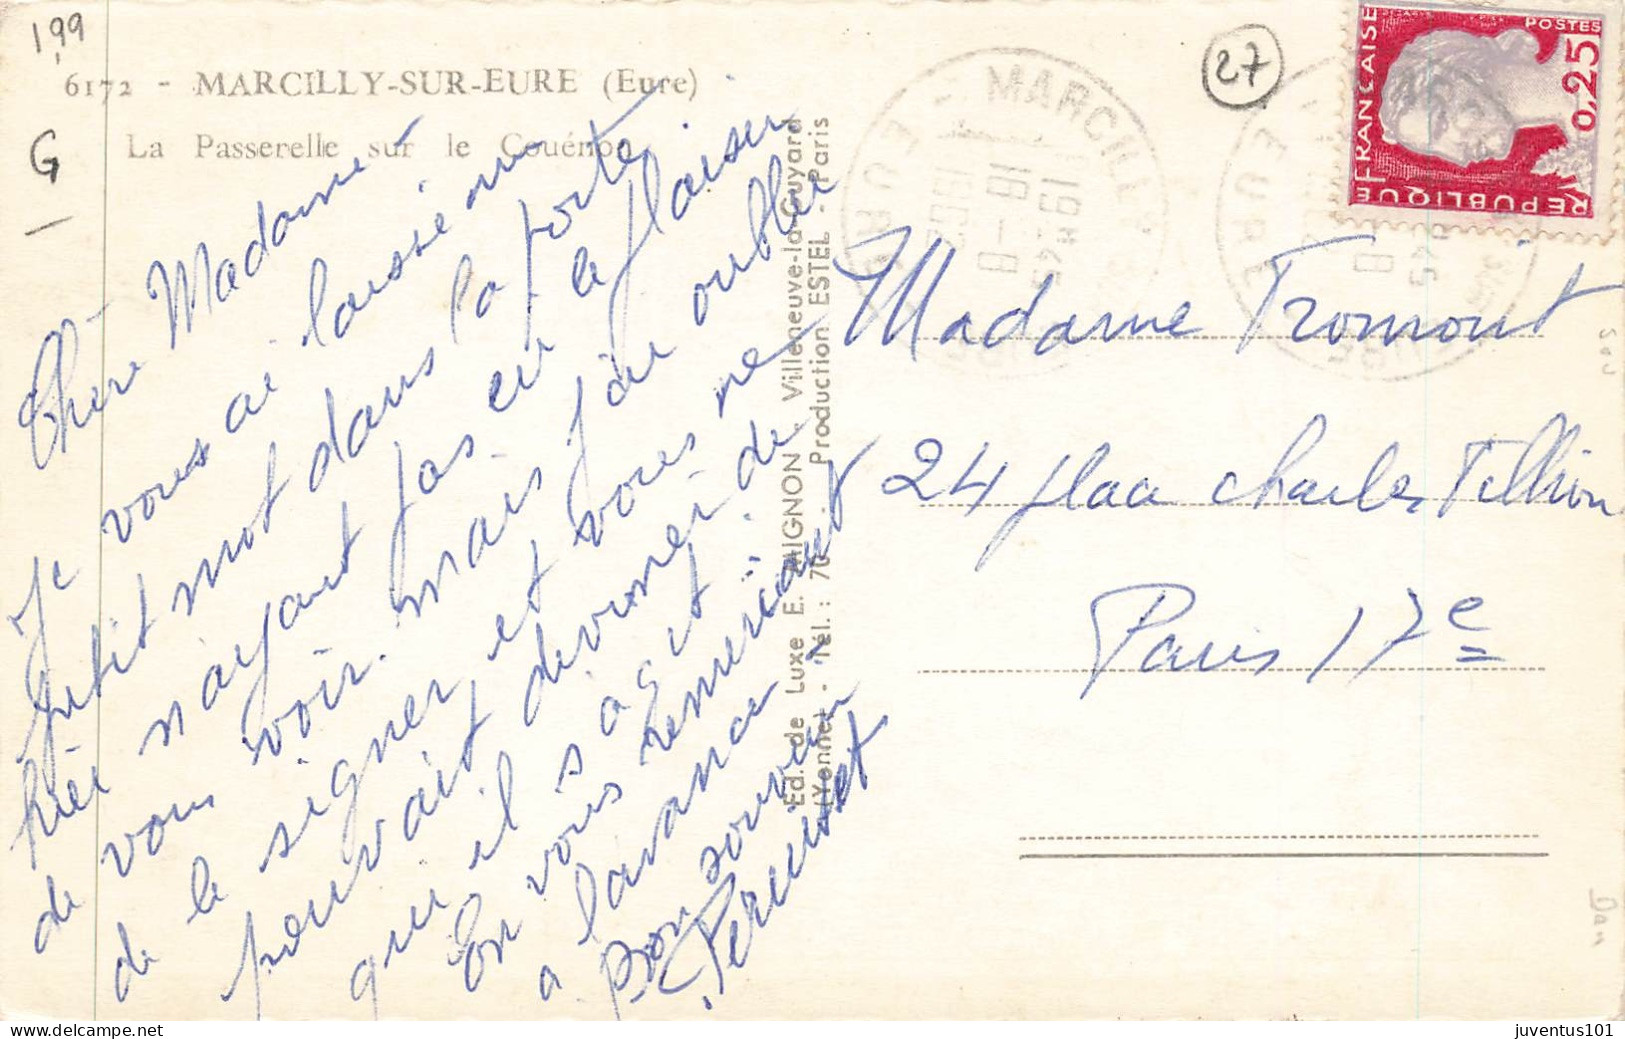 1,99
6172 - MARCILLY-SUR-EURE (Eure)
La Passerelle sur le Couénon
G
27
Chère Madame
Je vous ai laissé un
petit mot dans la porte
hier n'ayant pas eu le plaisir
de vous voir. mais j'ai oublié
de le signer et vous ne
pouvait deviner de
qui il s'agit
En vous remerciant
a l'avance
Bon souvenir
Ed. de Luxe E. MIGNON - Villeneuve-la-Guyard
(Yonne) - Tél.: 70 - Production ESTEL - Paris
MARCILLY
EURE
POSTES
0,25
REPUBLIQUE FRANÇAISE
Madame Tromont
24 place Charles Tillion
Paris 17e
juventus101